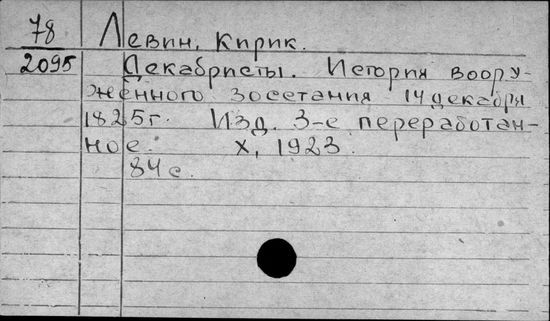 78 Левин, Кирик.
2095 Декабристы. История воору-
женного восстания 14 декабря
1825г. Изд. 3-е переработан-
ное. Х, 1923.
84 с.